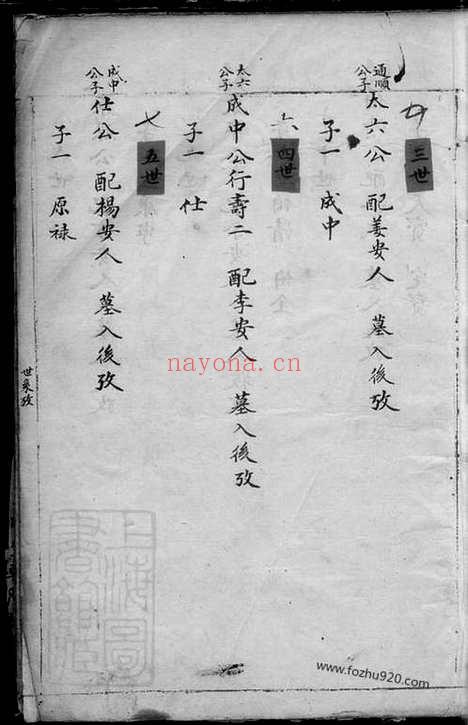 三世
通順公子 太六公 配姜安人 墓入後攷
子一 成中
六 四世
太六公子 成中公行壽二 配李安人 墓入後攷
子一 仕。
七 五世
成中公子 仕公公 配楊安人 墓入後攷
子一 原祿
世系攷
nayona.cn
上海圖書館藏
www.fozhu920.com